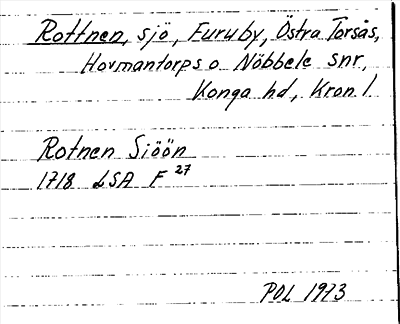 Rottnen, sjö, Furuby, Östra Torsås,
Hovmantorps o Nöbbele snr,
Konga hd, Kron. l.
Rotnen Siöön
1718 LSA F 27
POL 1973